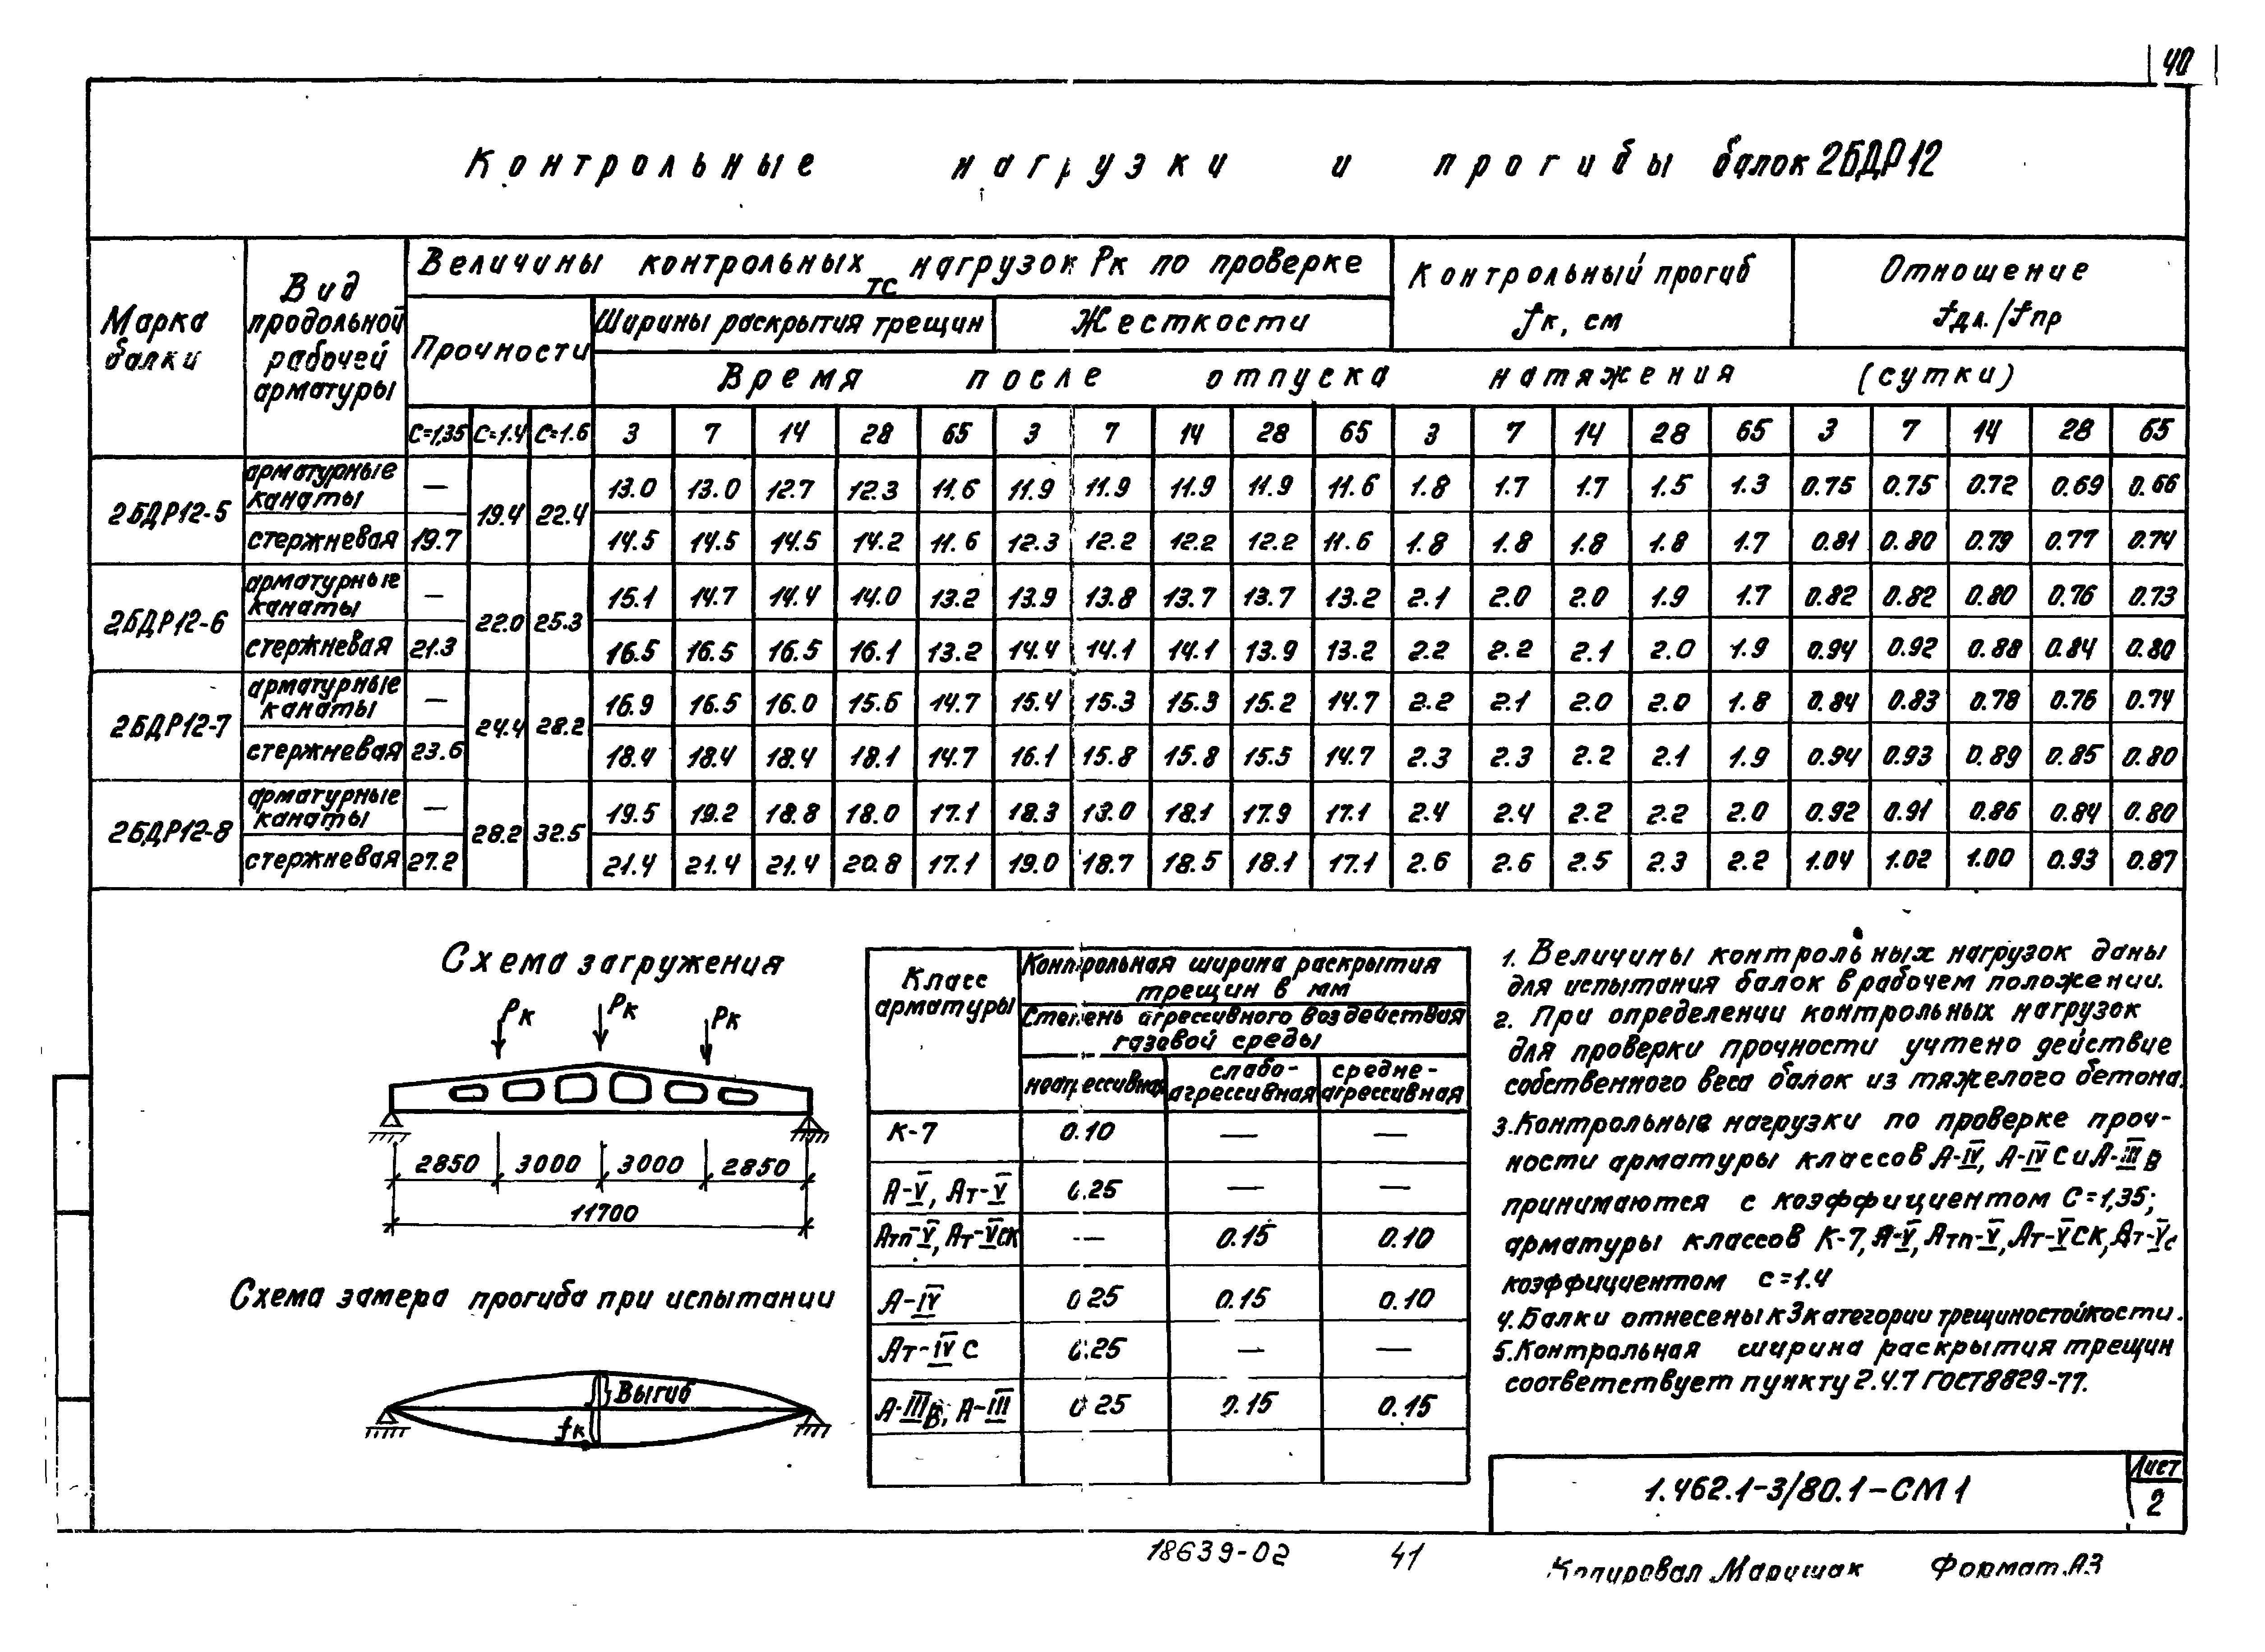 40
Контрольные нагрузки и прогибы балок 2БДР12
Марка балки
Вид продольной рабочей арматуры
Величины контрольных нагрузок Рк по проверке
тс
Контрольный прогиб fк, см
Отношение fдл./fпр
Прочности
Ширины раскрытия трещин
Жесткости
Время после отпуска натяжения (сутки)
С=1,35 С=1.4 С=1.6 3 7 14 28 65 3 7 14 28 65 3 7 14 28 65 3 7 14 28 65
2БДР12-5 19.4 22.4
арматурные канаты — 13.0 13.0 12.7 12.3 11.6 11.9 11.9 11.9 11.9 11.6 1.8 1.7 1.7 1.5 1.3 0.75 0.75 0.72 0.69 0.66
стержневая 19.7 14.5 14.5 14.5 14.2 11.6 12.3 12.2 12.2 12.2 11.6 1.8 1.8 1.8 1.8 1.7 0.81 0.80 0.79 0.77 0.74
2БДР12-6 22.0 25.3
арматурные канаты — 15.1 14.7 14.4 14.0 13.2 13.9 13.8 13.7 13.7 13.2 2.1 2.0 2.0 1.9 1.7 0.82 0.82 0.80 0.76 0.73
стержневая 21.3 16.5 16.5 16.5 16.1 13.2 14.4 14.1 14.1 13.9 13.2 2.2 2.2 2.1 2.0 1.9 0.94 0.92 0.88 0.84 0.80
2БДР12-7 24.4 28.2
арматурные канаты — 16.9 16.5 16.0 15.6 14.7 15.4 15.3 15.3 15.2 14.7 2.2 2.1 2.0 2.0 1.8 0.84 0.83 0.78 0.76 0.74
стержневая 23.6 18.4 18.4 18.4 18.1 14.7 16.1 15.8 15.8 15.5 14.7 2.3 2.3 2.2 2.1 1.9 0.94 0.93 0.89 0.85 0.80
2БДР12-8 28.2 32.5
арматурные канаты — 19.5 19.2 18.8 18.0 17.1 18.3 13.0 18.1 17.9 17.1 2.4 2.4 2.2 2.2 2.0 0.92 0.91 0.86 0.84 0.80
стержневая 27.2 21.4 21.4 21.4 20.8 17.1 19.0 18.7 18.5 18.1 17.1 2.6 2.6 2.5 2.3 2.2 1.04 1.02 1.00 0.93 0.87
Схема загружения
Рк Рк Рк
2850 3000 3000 2850
11700
Схема замера прогиба при испытании
Выгиб
fк
Класс арматуры
Контрольная ширина раскрытия
трещин в мм
Степень агрессивного воздействия
газовой среды
неагрессивная слабо-агрессивная средне-агрессивная
К-7 0.10 — —
А-V, Ат-V 0.25 — —
Атп-V, Ат-VСК — 0.15 0.10
А-IV 0.25 0.15 0.10
Ат-IV С 0.25 — —
А-IIIв, А-III 0.25 0.15 0.15
1. Величины контрольных нагрузок даны
для испытания балок в рабочем положении.
2. При определении контрольных нагрузок
для проверки прочности учтено действие
собственного веса балок из тяжелого бетона.
3. Контрольные нагрузки по проверке проч-
ности арматуры классов А-IV, А-IV С и А-IIIв
принимаются с коэффициентом С=1,35;
арматуры классов К-7, А-V, Атп-V, Ат-VСК, Ат-Vс
коэффициентом с=1.4
4. Балки отнесены к 3 категории трещиностойкости.
5. Контрольная ширина раскрытия трещин
соответствует пункту 2.4.7 ГОСТ 8829-77.
1.462.1-3/80.1-СМ1
Лист
2
18639-02 41
Копировал Маришак Формат А3